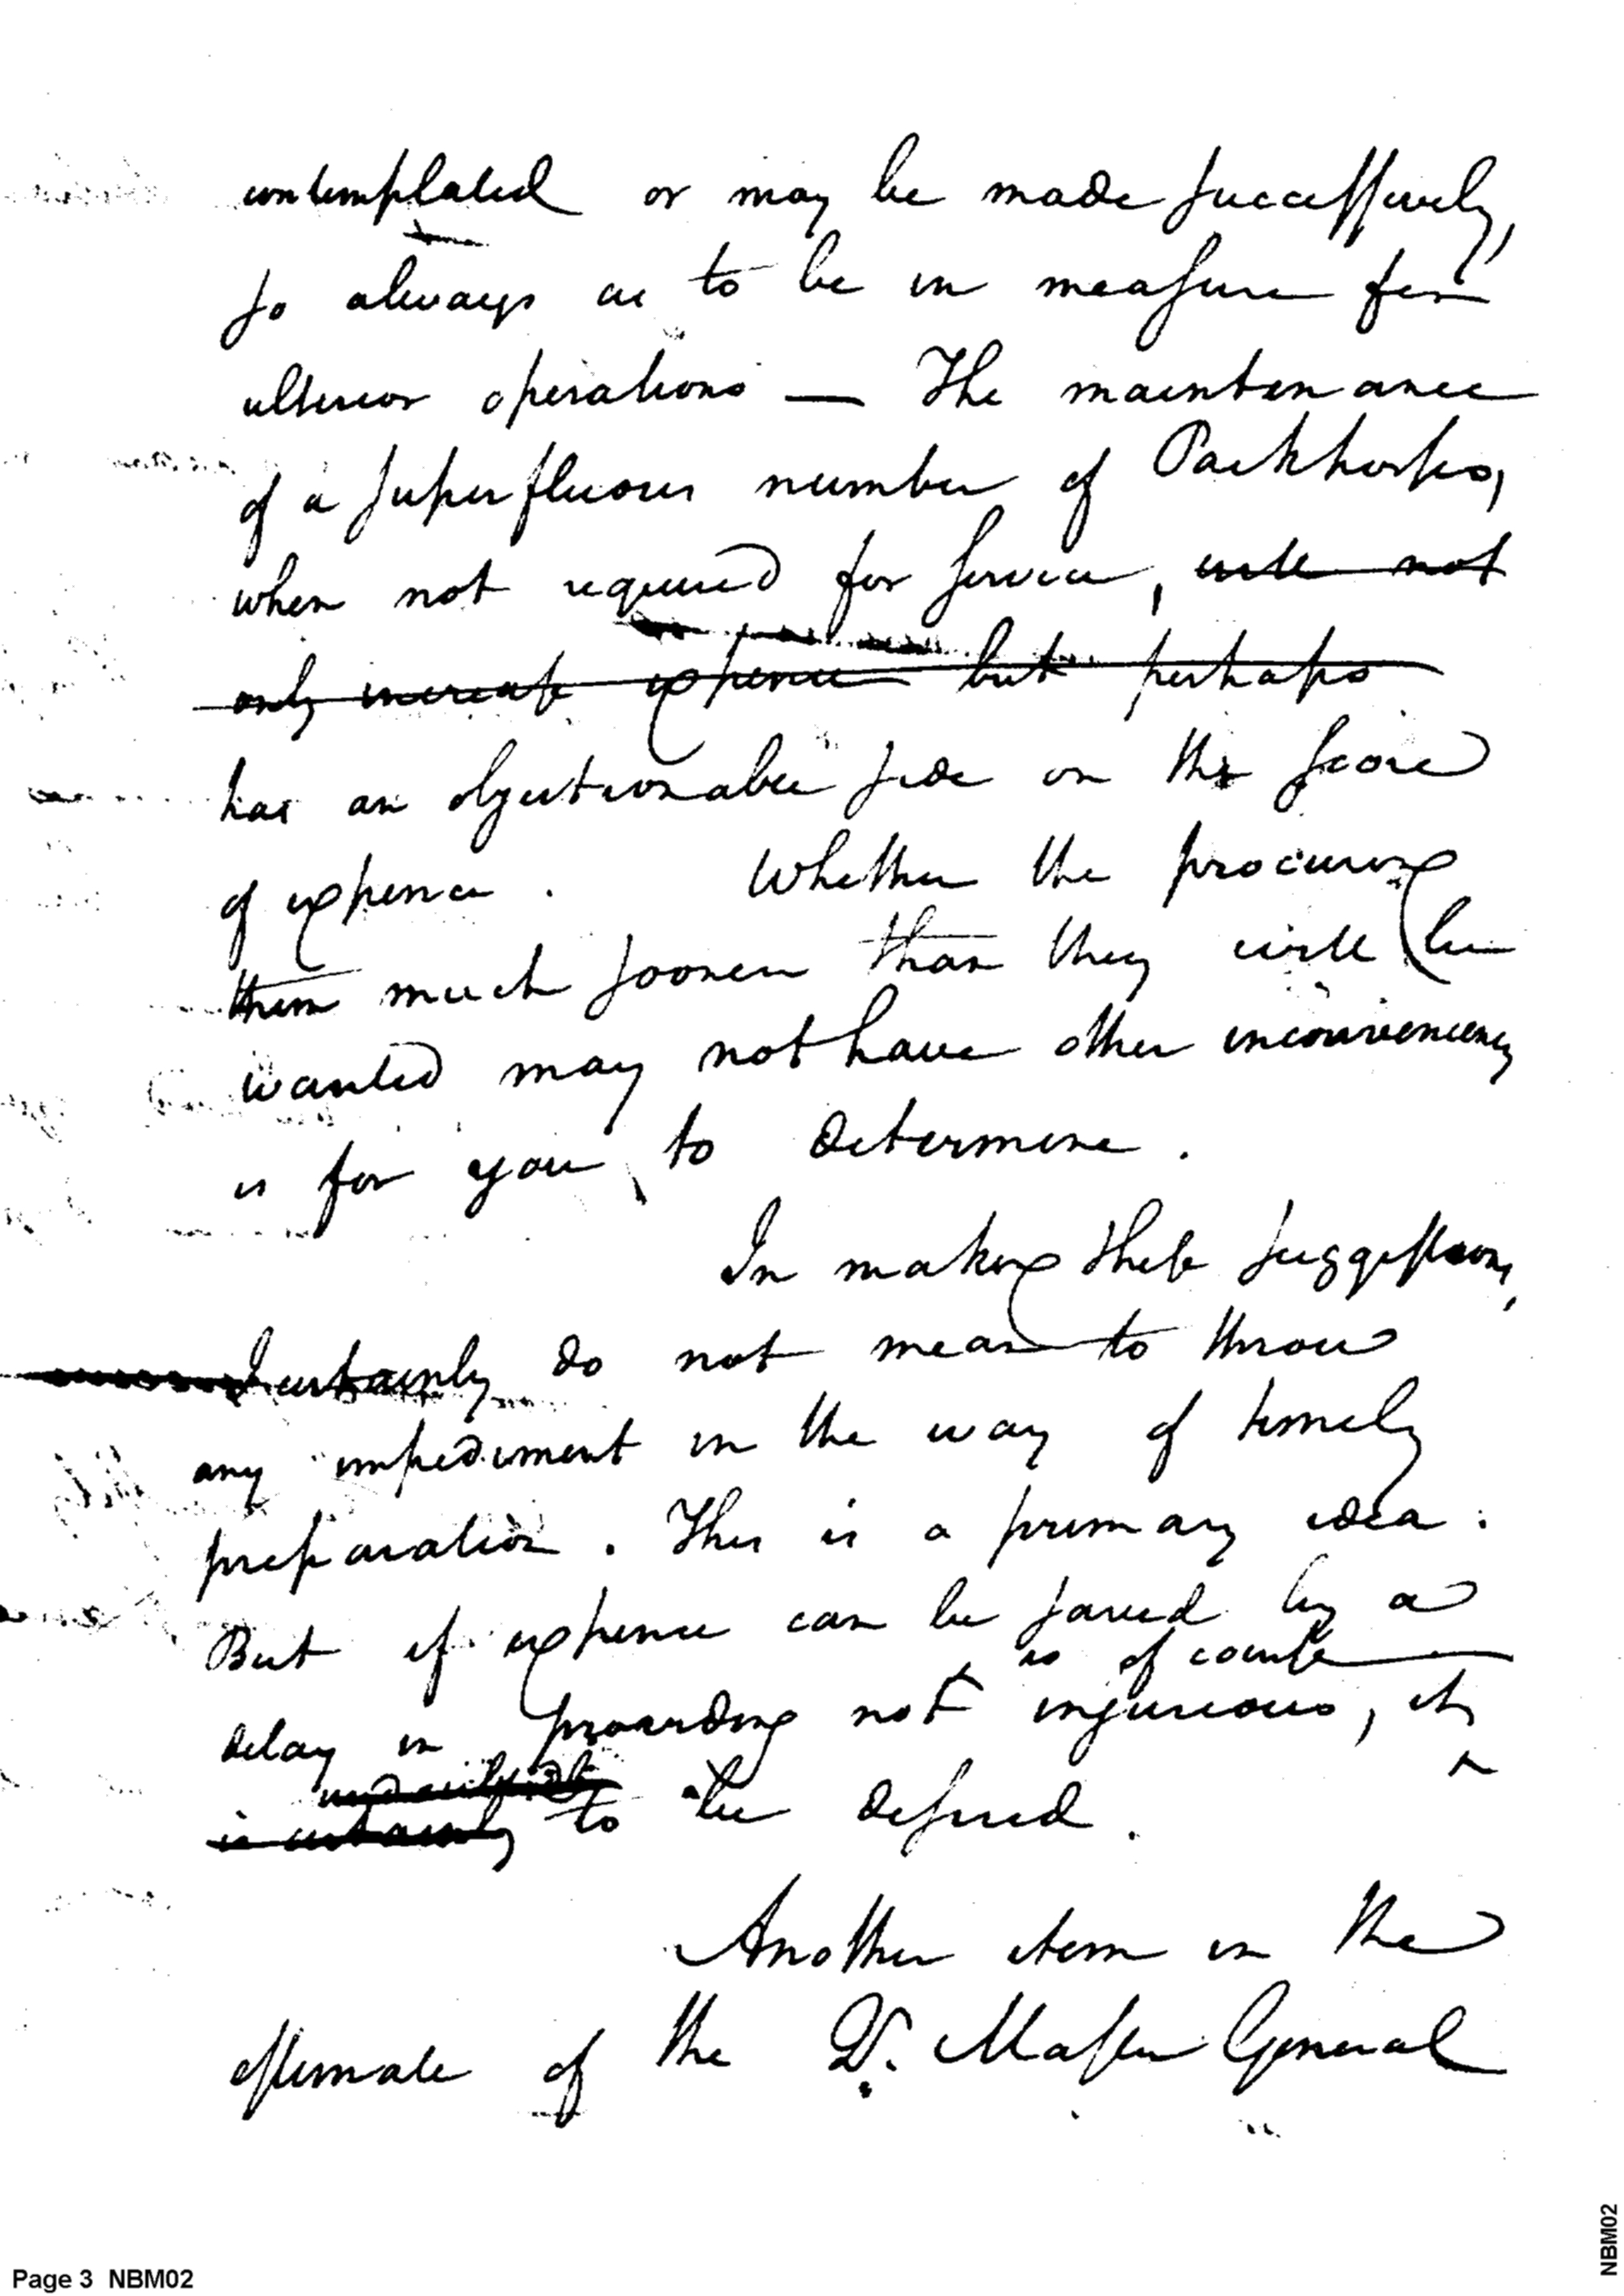 contemplated or may be made successively,
so always as to be in measure for
ulterior operations — The maintenance
of a superfluous number of Packhorses,
when not required for service, will not
only increase expence but perhaps
has an objectionable side on the score
of expence. Whether the procuring
them much sooner than they will be
wanted may not have other inconveniency
is for you to determine.
In making these suggestions,
I certainly do not mean to throw
any impediment in the way of timely
preparation. This is a primary idea.
But if expence can be saved by a
is of course
delay in providing not injurious, it
^
is certainly to be desired.
Another item in the
estimate of the Qr. Master General
Page 3 NBM02
NBM02